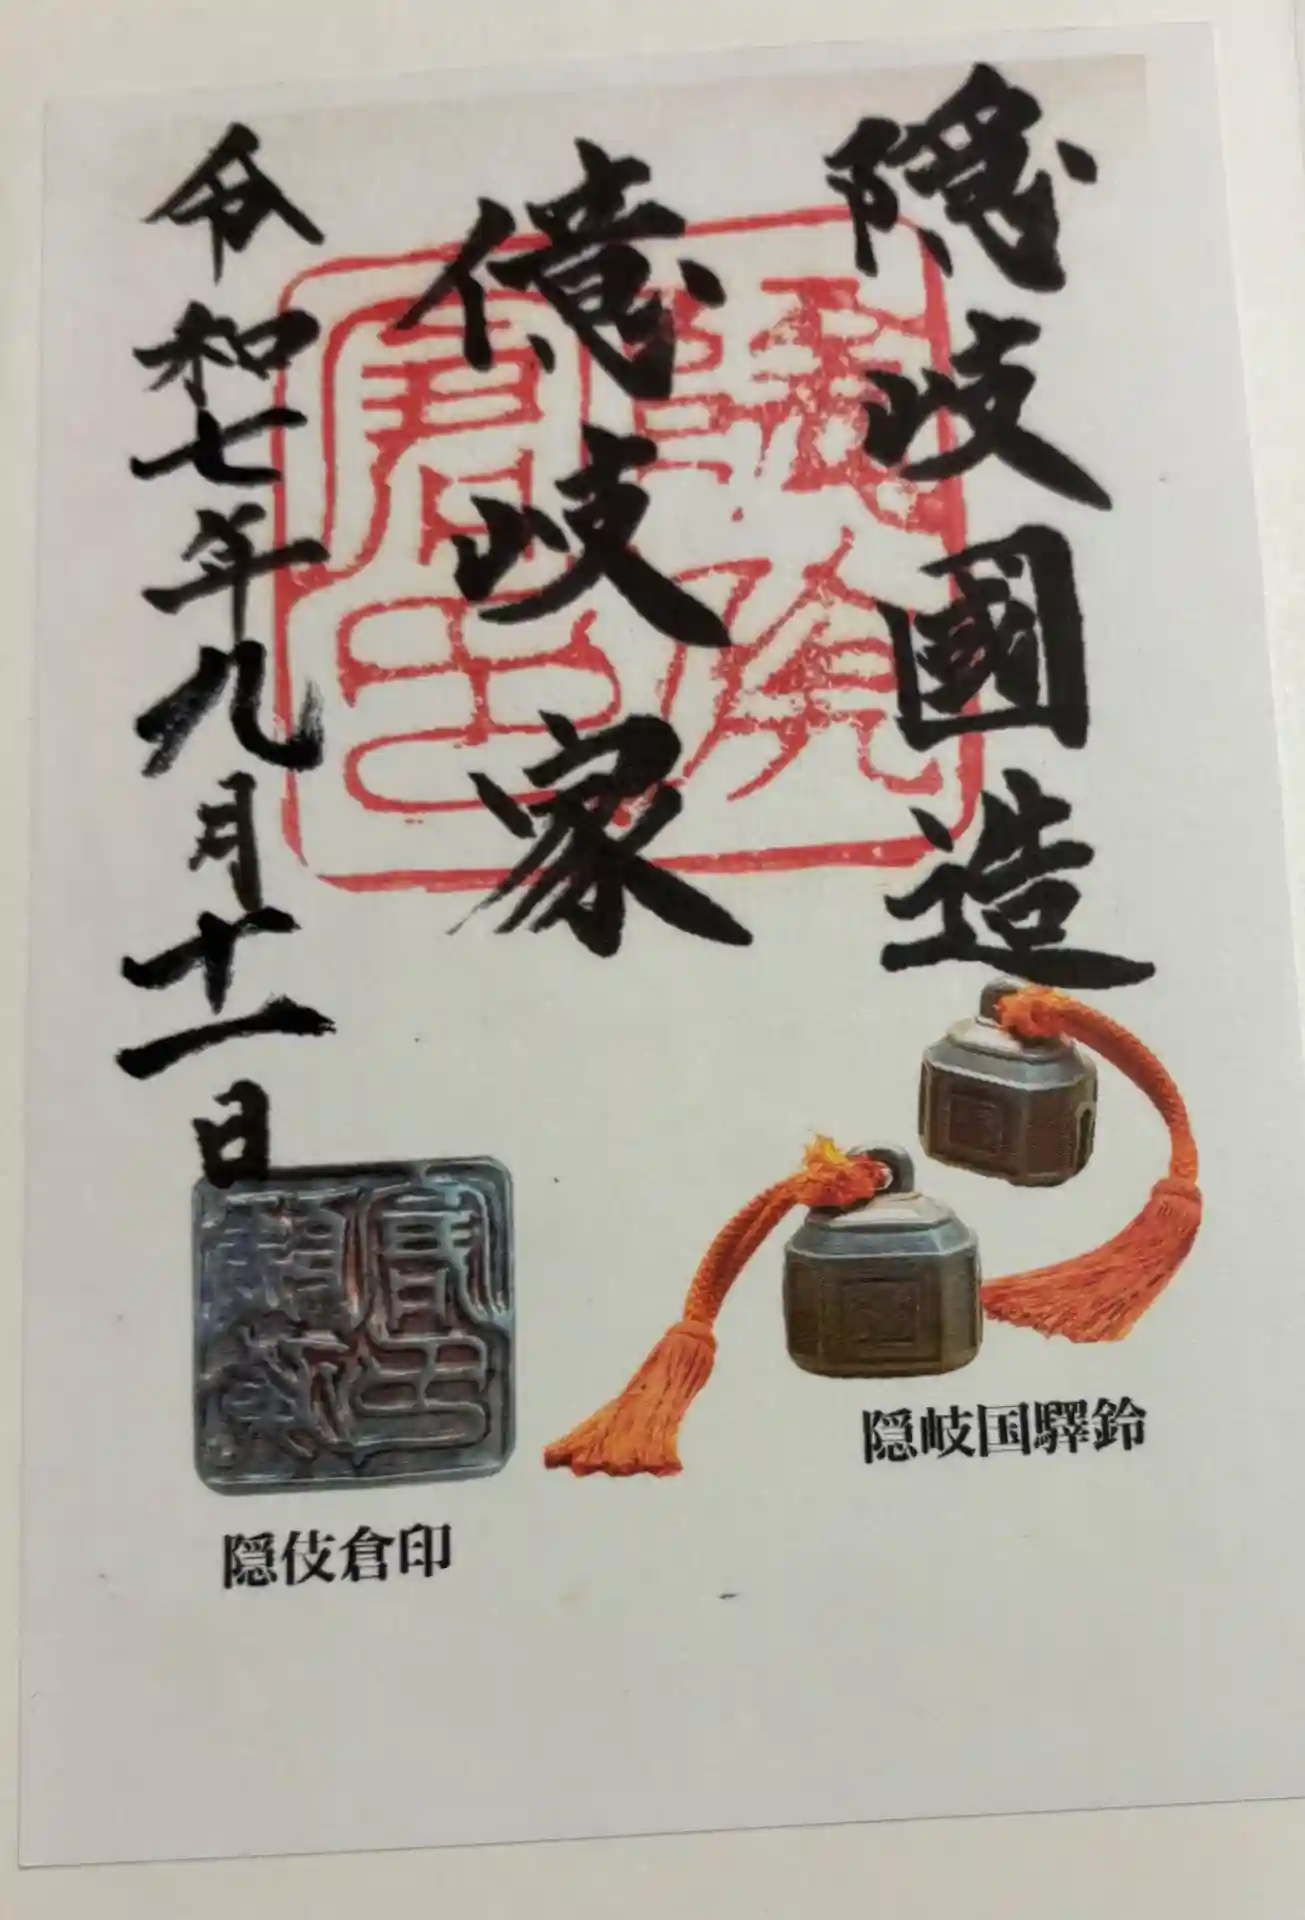 隠岐國造
億岐家
令和七年九月十一日
隠岐国驛鈴
隠伎倉印